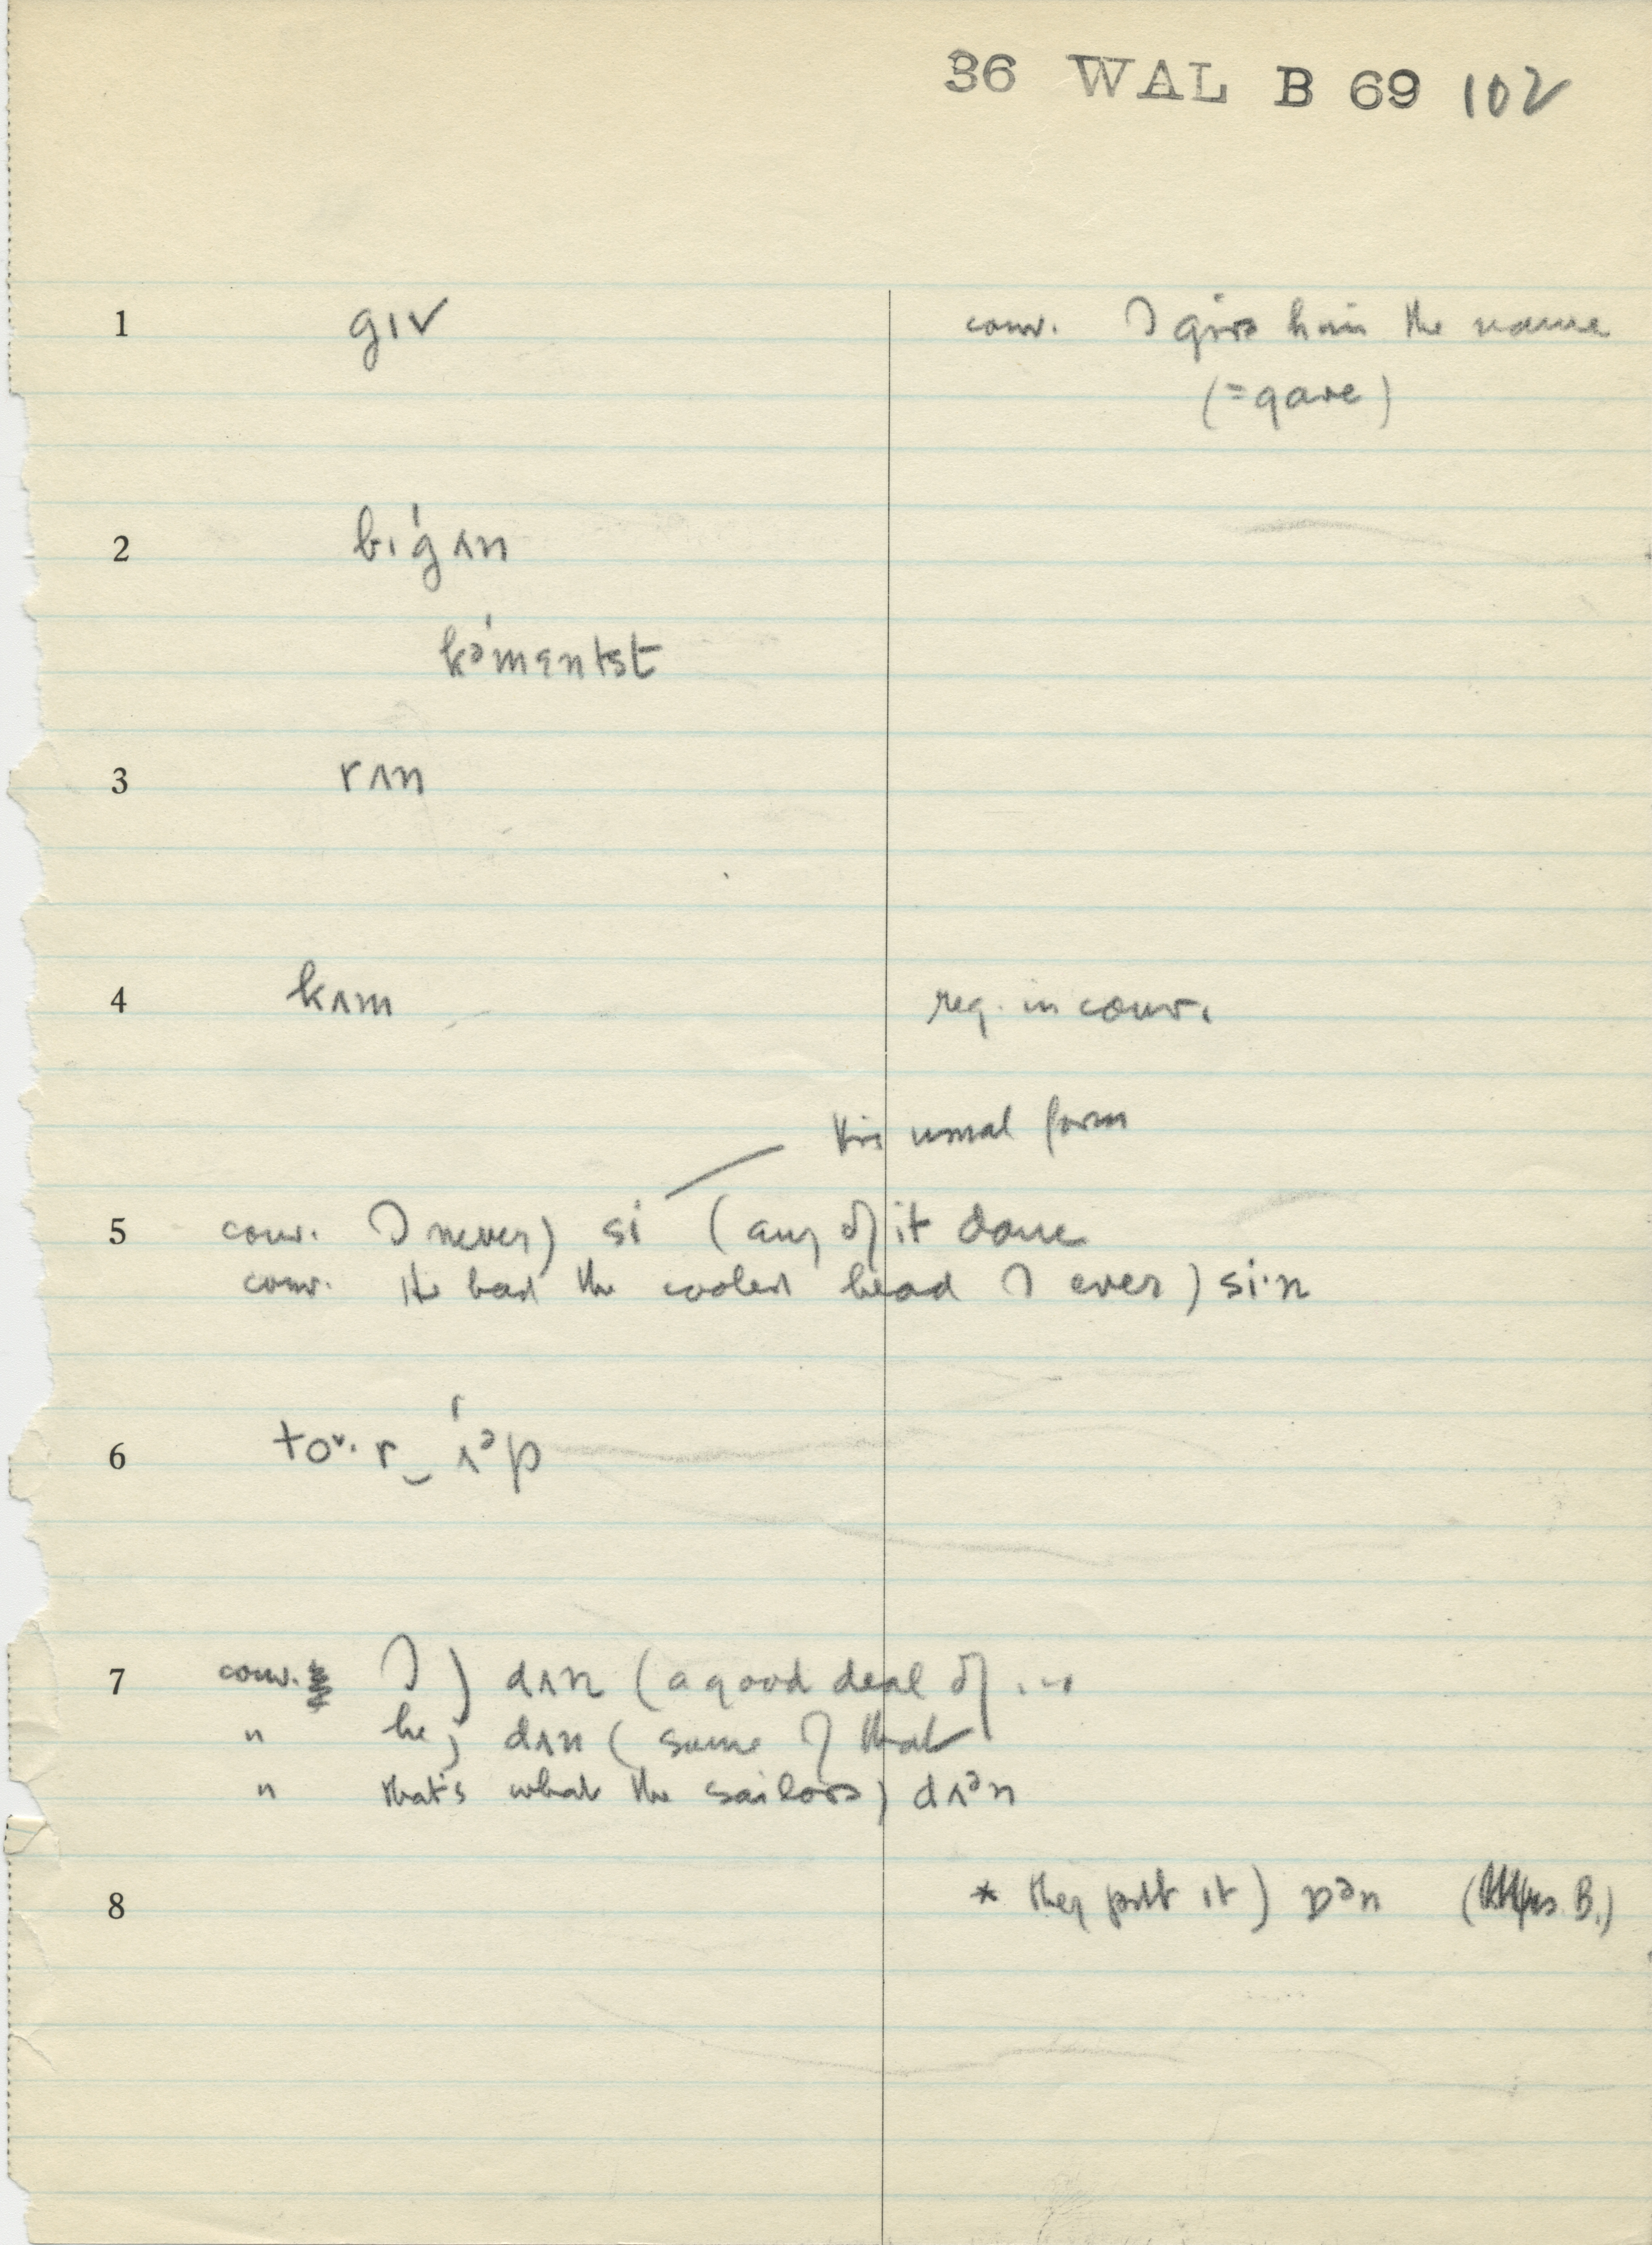 36 WAL B 69 102
1 gɪv conv. I give him the name
(=gave)
2 bɪ'gʌn
kə'mɛntst
3 rʌn
4 kʌm reg. in conv.
this usual form
5 conv. I never) si (any of it done
conv. He had the coolest head I ever) si·n
6 to˅·r‿'ʌᵊp
7 conv. I) dʌn (a good deal of ...
" he) dʌn (some of that
" that's what the sailors) dʌᵊn
8 * they put it) ɒᵊn ( B.)